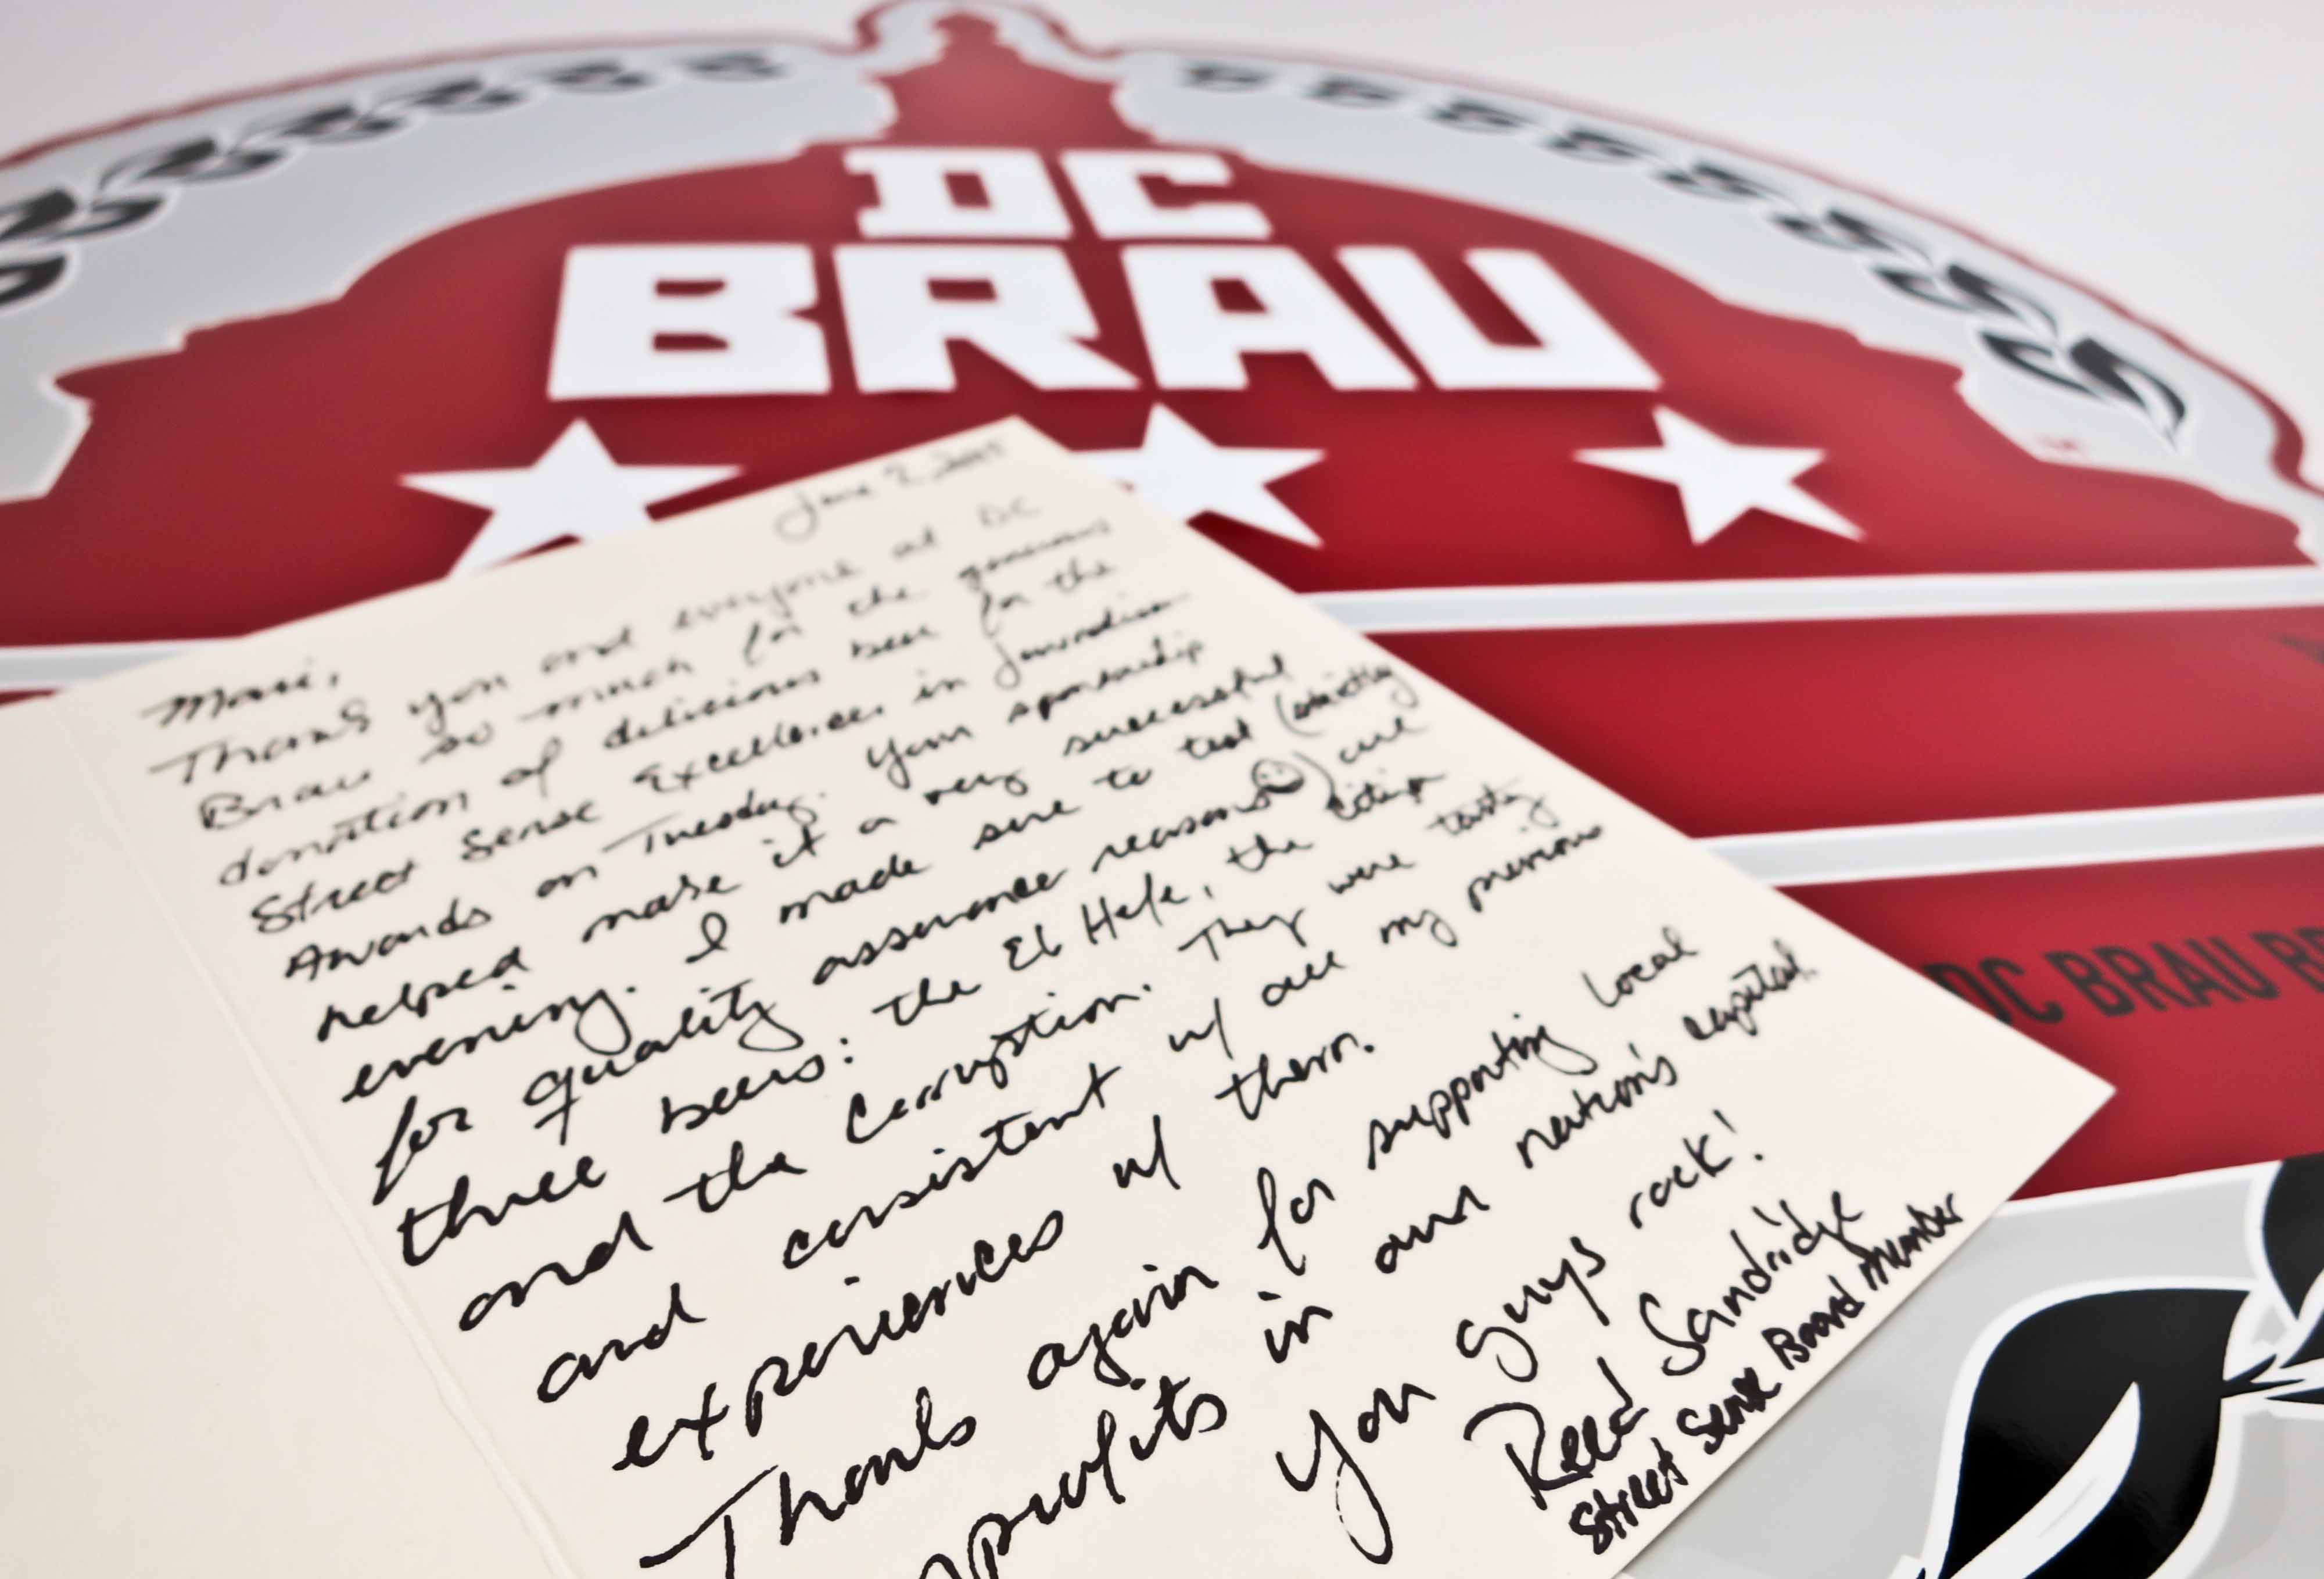 DC
BRAU
June 2, 2015
Thank you and everyone at DC
Brau so much for the generous
donation of delicious beer for the
Street Sense Excellence in Journalism
Awards on Tuesday. Your sponsorship
helped make it a very successful
evening. I made sure to test (strictly
for quality assurance reasons) all
three beers: the El Hefe, the Citizen
and the Corruption. They were tasty
and consistent w/ all my previous
experiences w/ them.
Thanks again for supporting local
profits in our nation's capital.
You guys rock!
Reed Sandridge
Street Sense Board Member
DC BRAU